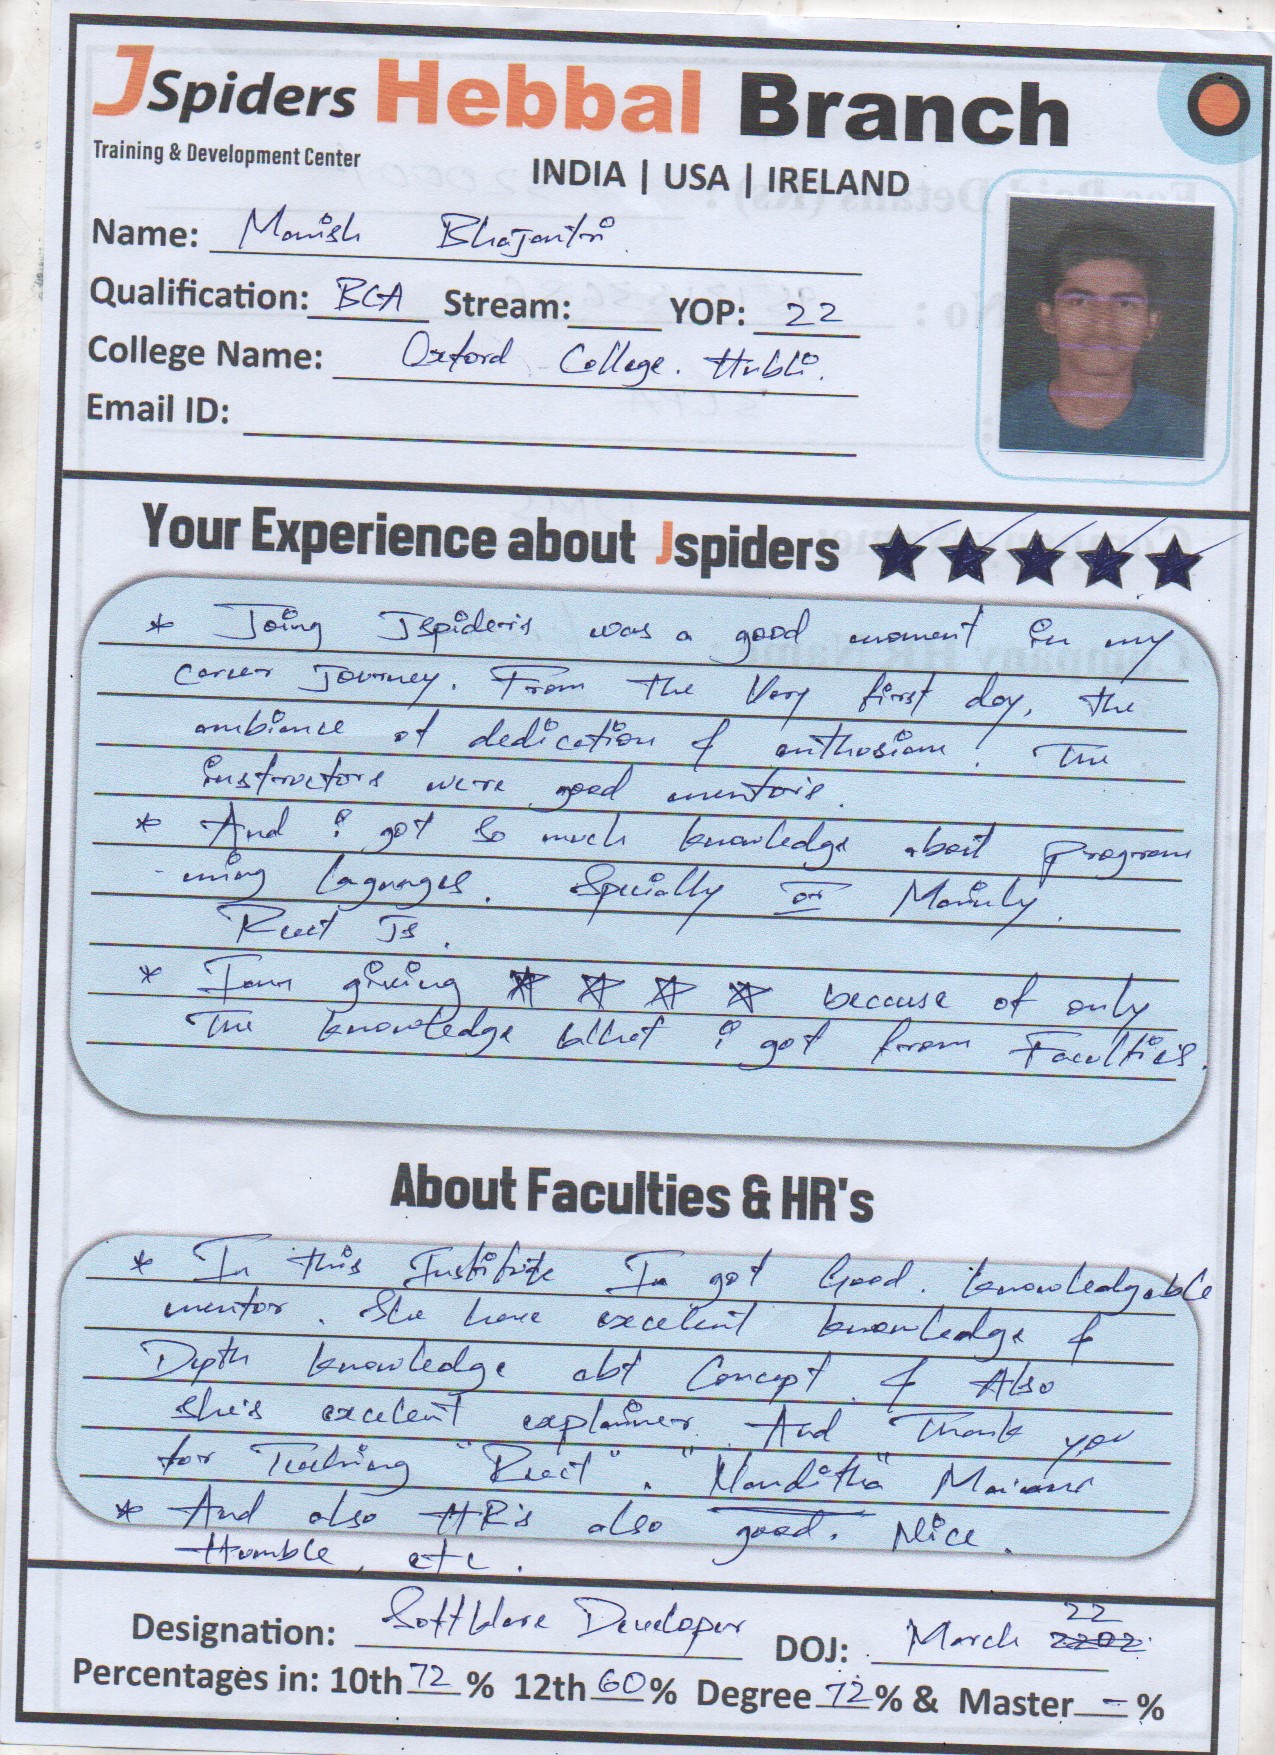 JSpiders Hebbal Branch
Training & Development Center
INDIA | USA | IRELAND
Name: Manish Bhajantri
Qualification: BCA Stream: YOP: 22
College Name: Oxford College. Hubli.
Email ID:
Your Experience about Jspiders
* Joing Jspiders was a good moment in my
career Journey. From the Very first day, the
ambiance of dedication & enthusiam. The
instructors were good mentors.
* And i got so much knowledge about program
-ming laguages. Specially or Mainly.
React Js.
* Iam giving ☆ ☆ ☆ ☆ because of only
The knowledge what i got from Faculties.
About Faculties & HR's
* In this Institute I got Good. knowledgable
mentor. She have excelent knowledge &
Depth knowledge abt Concept. & Also
she's excelent explainner. And Thank you
for Teaching "React". "Nanditha"
* And also HR's also good. Nice.
Humble, etc.
Designation: Software Developer DOJ: March 22
Percentages in: 10th 72 % 12th 60 % Degree 72 % & Master - %